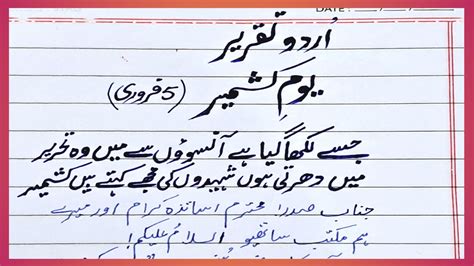 DATE: / /
اُردو تقریر
یومِ کشمیر (5 فروری)
جسے لکھا گیا ہے آنسوؤں سے میں وہ تحریر
میں دھرتی ہوں شہیدوں کی مجھے کہتے ہیں کشمیر
جناب صدر! محترم اساتذہ کرام اور میرے
ہم مکتب ساتھیو السلامُ علیکم!